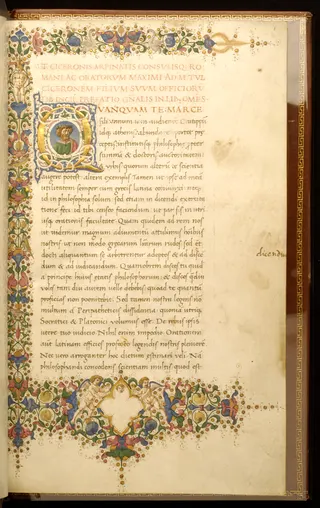 CICERONIS ARPINATIS CONSVLISQ. RO
MANI AC ORATORVM MAXIMI AD M. TVL
CICERONEM FILIVM SVVM OFFICIORV
QVANQVAM TE MARCE
fili annum iam audientem Cratippu
idq athenis abundare oportet prę
ceptis institutisq philosophię propter
summā & doctoris auctoritatem
& urbis quorum alter te scientia
augere potest altera exemplis: tamen ut ipse ad meā
utilitatem semper cum grecis latina coniunxi neq
id in philosophia solum Sed etiam in dicendi exercita
tione feci id tibi censeo faciendum ut par sis in utri
usq orationis facultate Quam quidem ad rem nos
ut uidemur magnum adiumentum attulimus hominibus
nostris ut non modo grecarum litterarum rudes sed et
docti aliquantum se arbitrentur adeptos & ad discē
dum & ad iudicandum Quamobrem disces tu quidē
a principe huius ętatis philosophorum & disces qdiu
uoles tam diu autem uelle debebis quoad te quantū
proficias non poenitebit Sed tamen nostra legens nō
multum a Peripatheticis dissidentia quoniam utriq
Socratici & Platonici uolumus esse De rebus ipsis
utere tuo iudicio Nihil enim impedio Orationem
aut latinam efficies profecto legendis nostris pleniorē
Nec uero arroganter hoc dictum existimari uelī Nā
philosophandi concedens scientiam multis quod est
dicendi